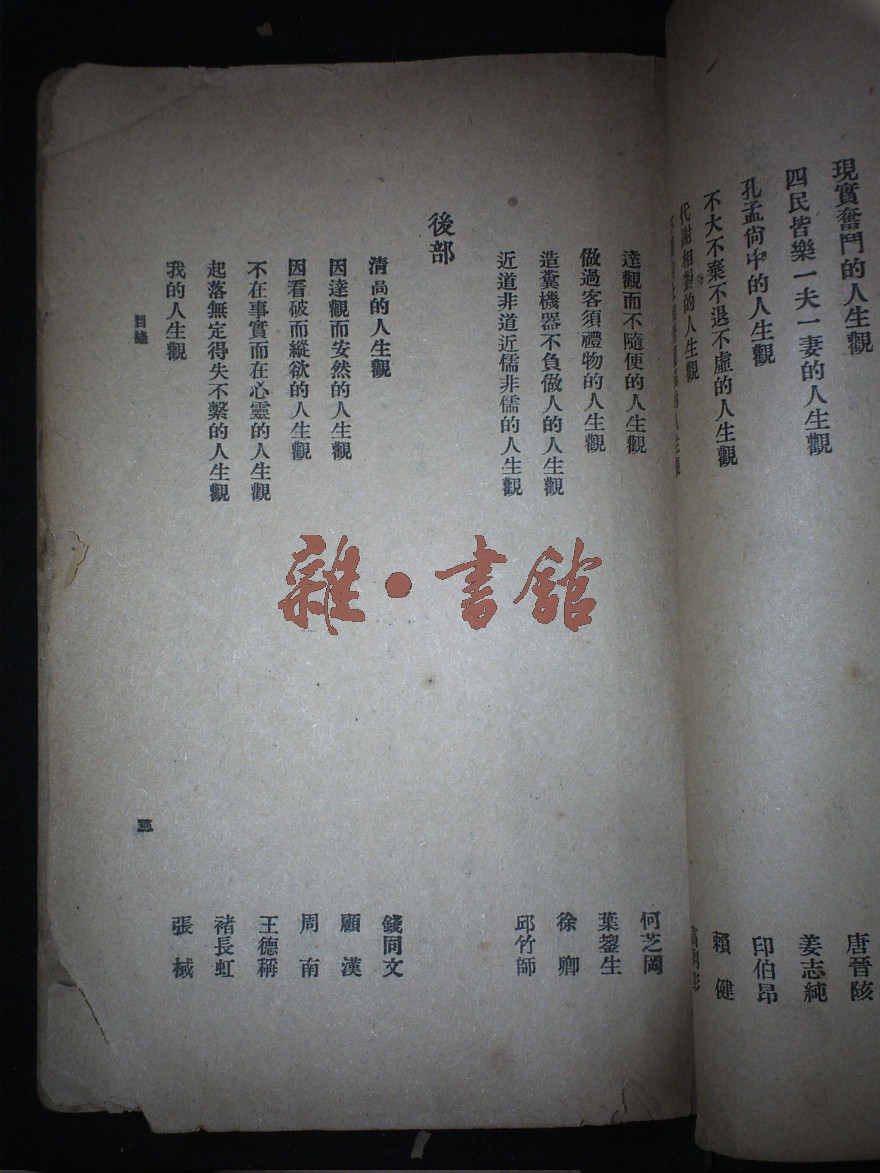 現實奮鬥的人生觀
唐晉陔
四民皆樂一夫一妻的人生觀
姜志純
孔孟尙中的人生觀
印伯昂
不大不棄不退不虛的人生觀
賴健
代謝相對的人生觀
達觀而不隨便的人生觀
何芝岡
做過客須禮物的人生觀
葉鋆生
造糞機器不負做人的人生觀
徐卿
近道非道近儒非儒的人生觀
邱竹師
後部
清高的人生觀
錢同文
因達觀而安然的人生觀
顧漢
因看破而縱欲的人生觀
周南
不在事實而在心靈的人生觀
王德稱
起落無定得失不繫的人生觀
褚長虹
我的人生觀
張棫
目錄
三
雜·書館